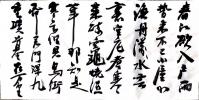 春江欲入户雨
势来不已小屋如
渔舟濛水云
里空庖煮寒
菜破灶烧湿
苇那知是
寒食但见乌衔
纸君门深九
重坟墓在万里